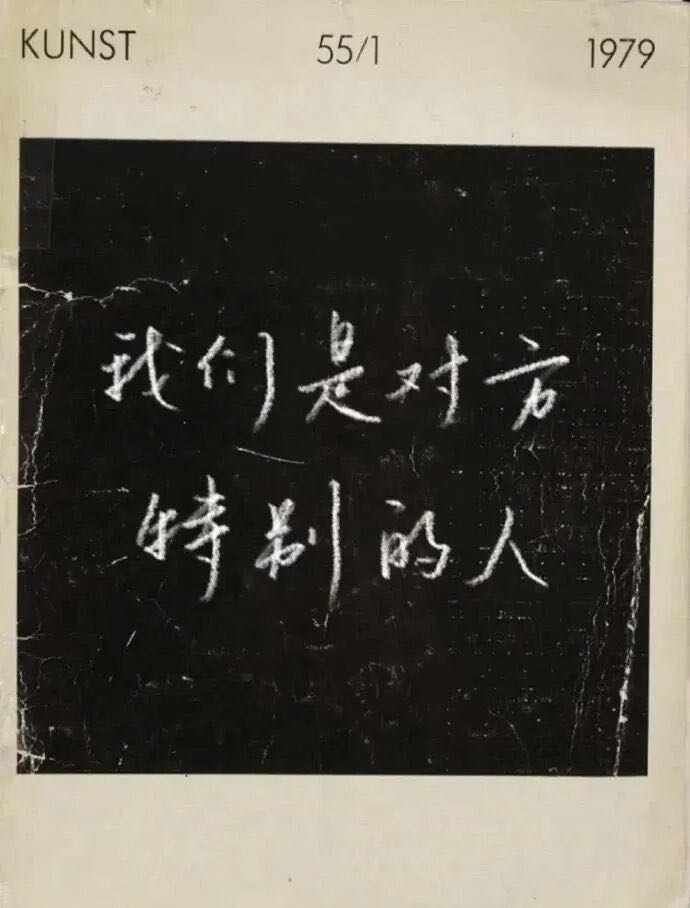 KUNST 55/1 1979
我们是对方
特别的人